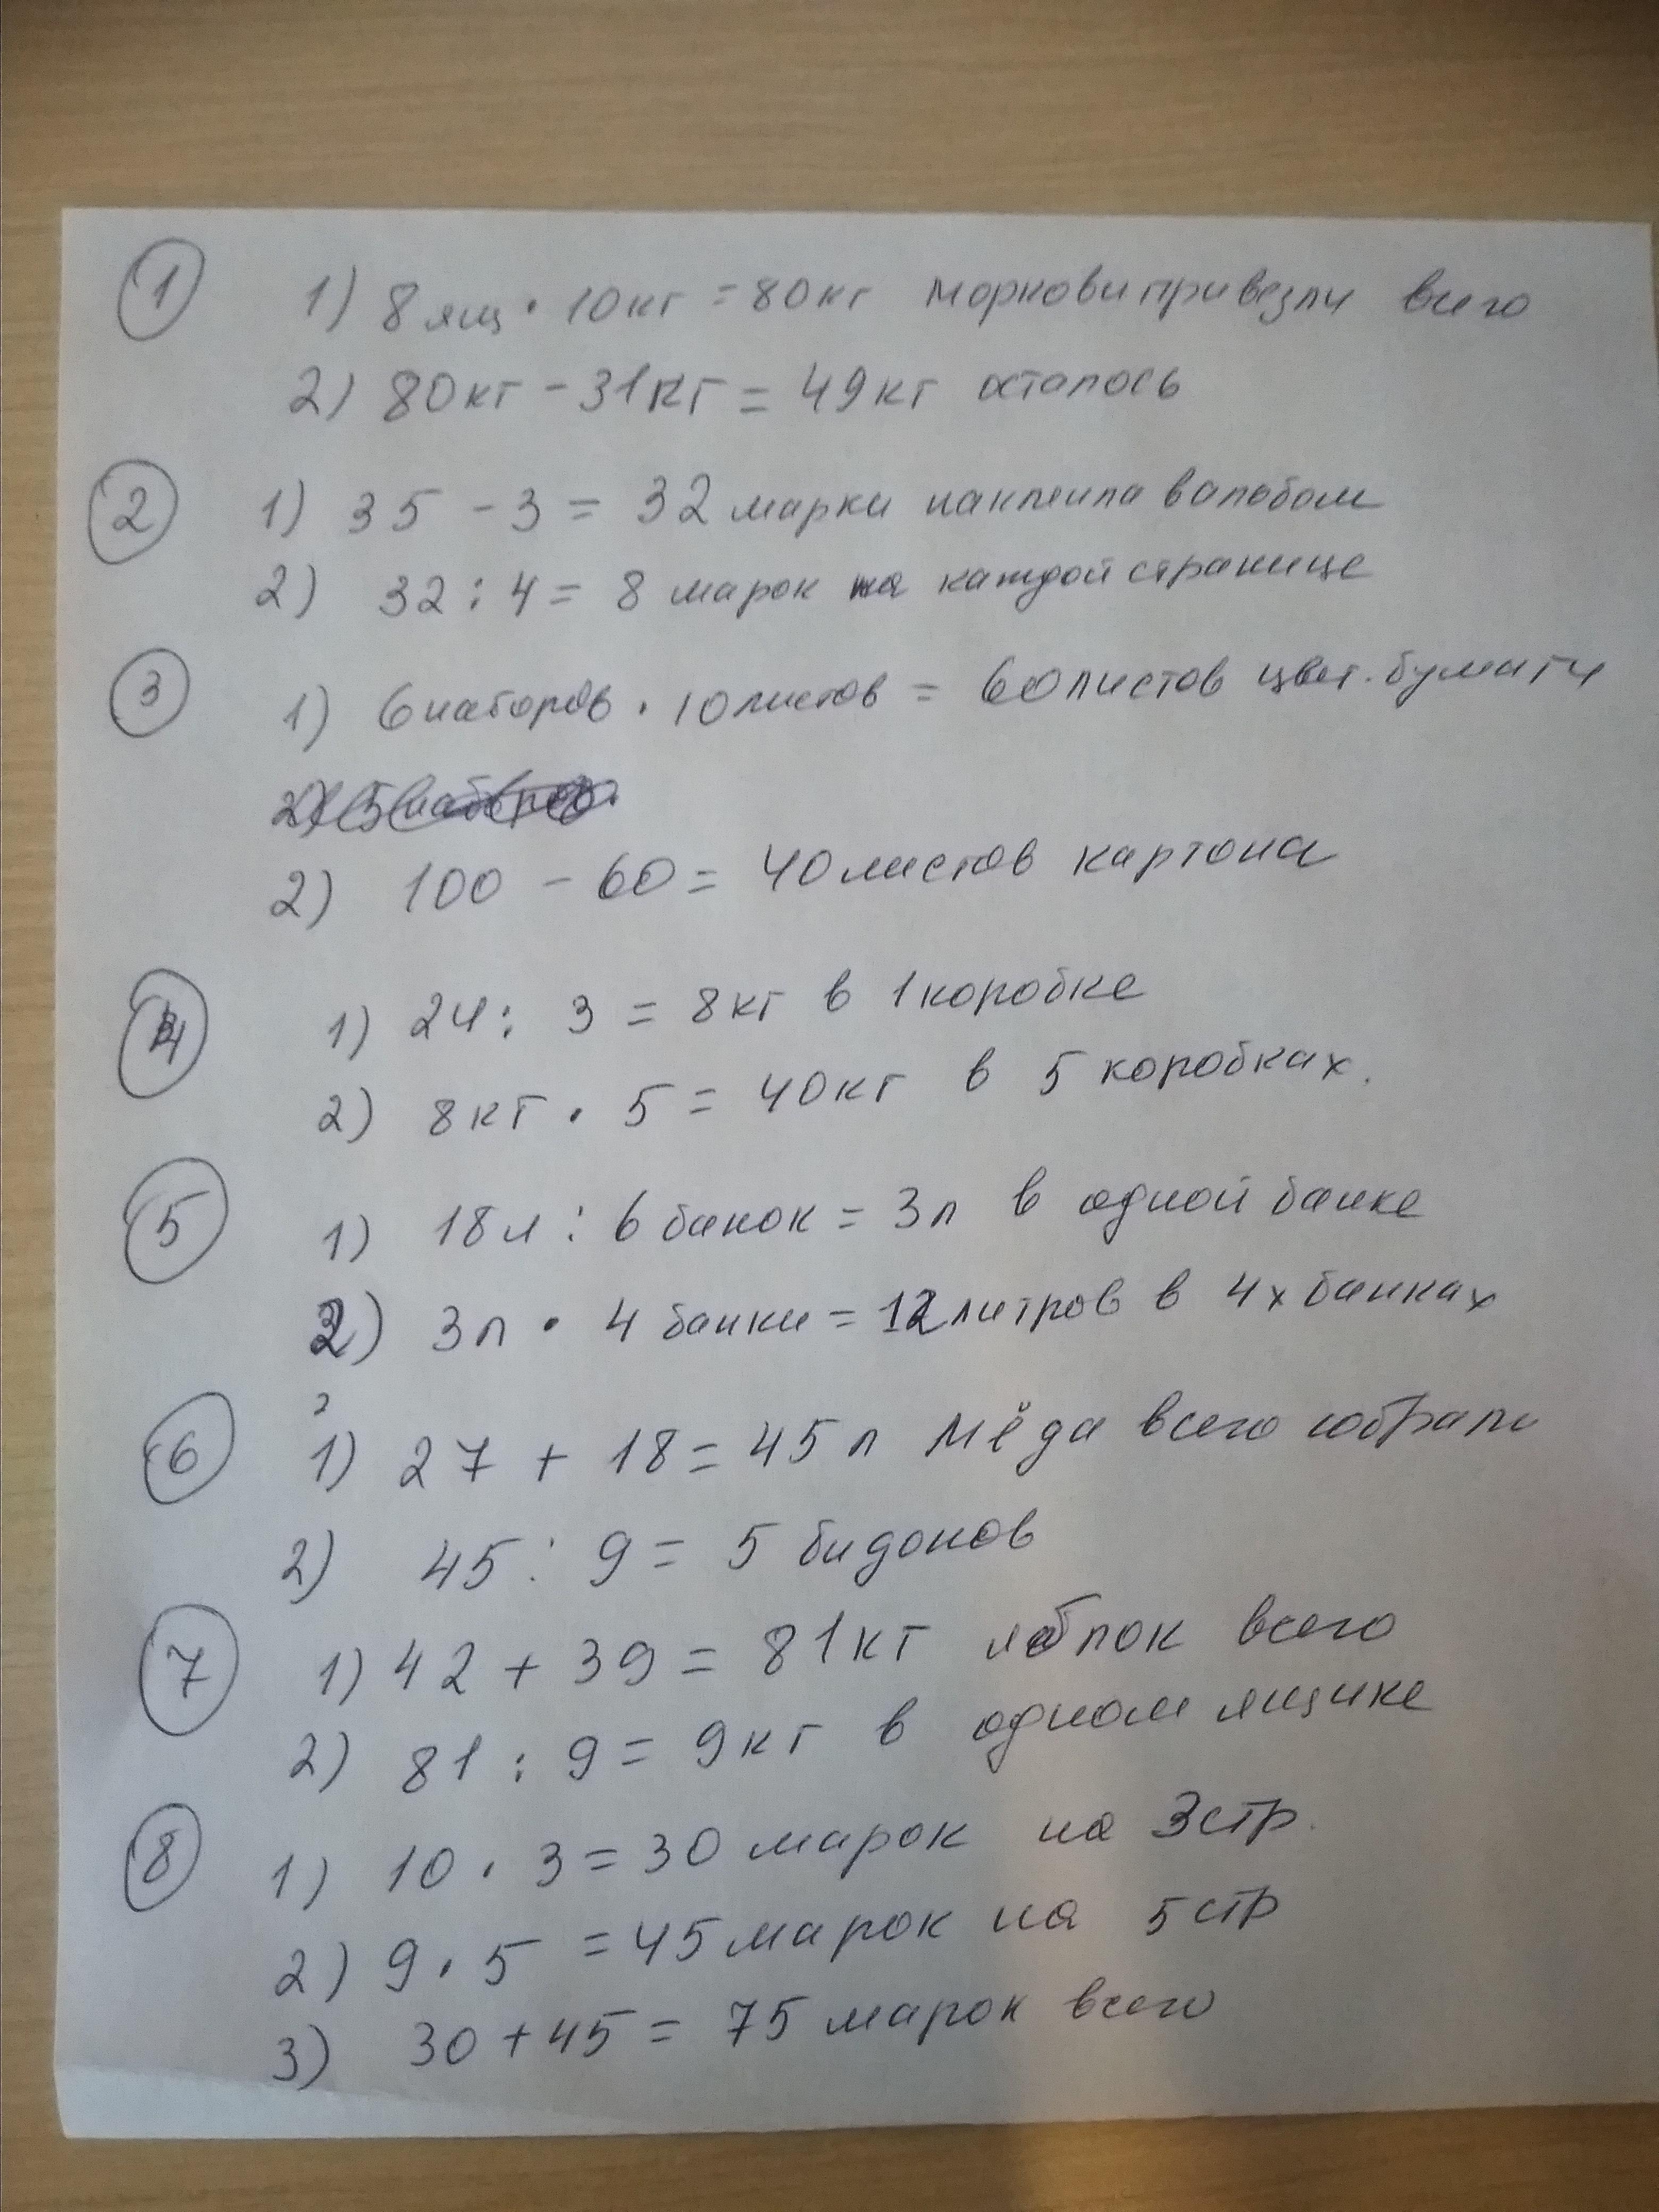 1
1) 8 ящ · 10 кг = 80 кг моркови привезли всего
2) 80 кг - 31 кг = 49 кг осталось
2
1) 35 - 3 = 32 марки наклеила в альбом
2) 32 : 4 = 8 марок на каждой странице
3
1) 6 наборов · 10 листов = 60 листов цвет. бумаги
2) 100 - 60 = 40 листов картона
4
1) 24 : 3 = 8 кг в 1 коробке
2) 8 кг · 5 = 40 кг в 5 коробках.
5
1) 18 л : 6 банок = 3 л в одной банке
2) 3 л · 4 банки = 12 литров в 4х банках
6
1) 27 + 18 = 45 л мёда всего собрали
2) 45 : 9 = 5 бидонов
7
1) 42 + 39 = 81 кг яблок всего
2) 81 : 9 = 9 кг в одном ящике
8
1) 10 · 3 = 30 марок на 3 стр.
2) 9 · 5 = 45 марок на 5 стр
3) 30 + 45 = 75 марок всего